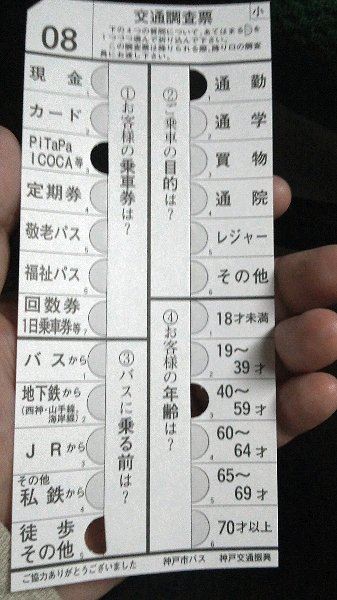 小
08
交通調査票
下の4つの質問について、あてはまる○を
1つずつ選んで折り込んで下さい。
この調査票は降りられる際、降り口の調査
員にお渡し下さい。
①お客様の乗車券は?
現金
カード 2
PiTaPa
ICOCA等 3
定期券 4
敬老パス 5
福祉パス 6
回数券
1日乗車券等 7
②ご乗車の目的は?
1 通勤
2 通学
3 買物
4 通院
5 レジャー
6 その他
③バスに乗る前は?
バスから 1
地下鉄から 2
(西神・山手線、
海岸線)
JRから 3
その他
私鉄から 4
徒歩
その他 5
④お客様の年齢は?
1 18才未満
2 19~
39才
3 40~
59才
4 60~
64才
5 65~
69才
6 70才以上
ご協力ありがとうございました
神戸市バス 神戸交通振興